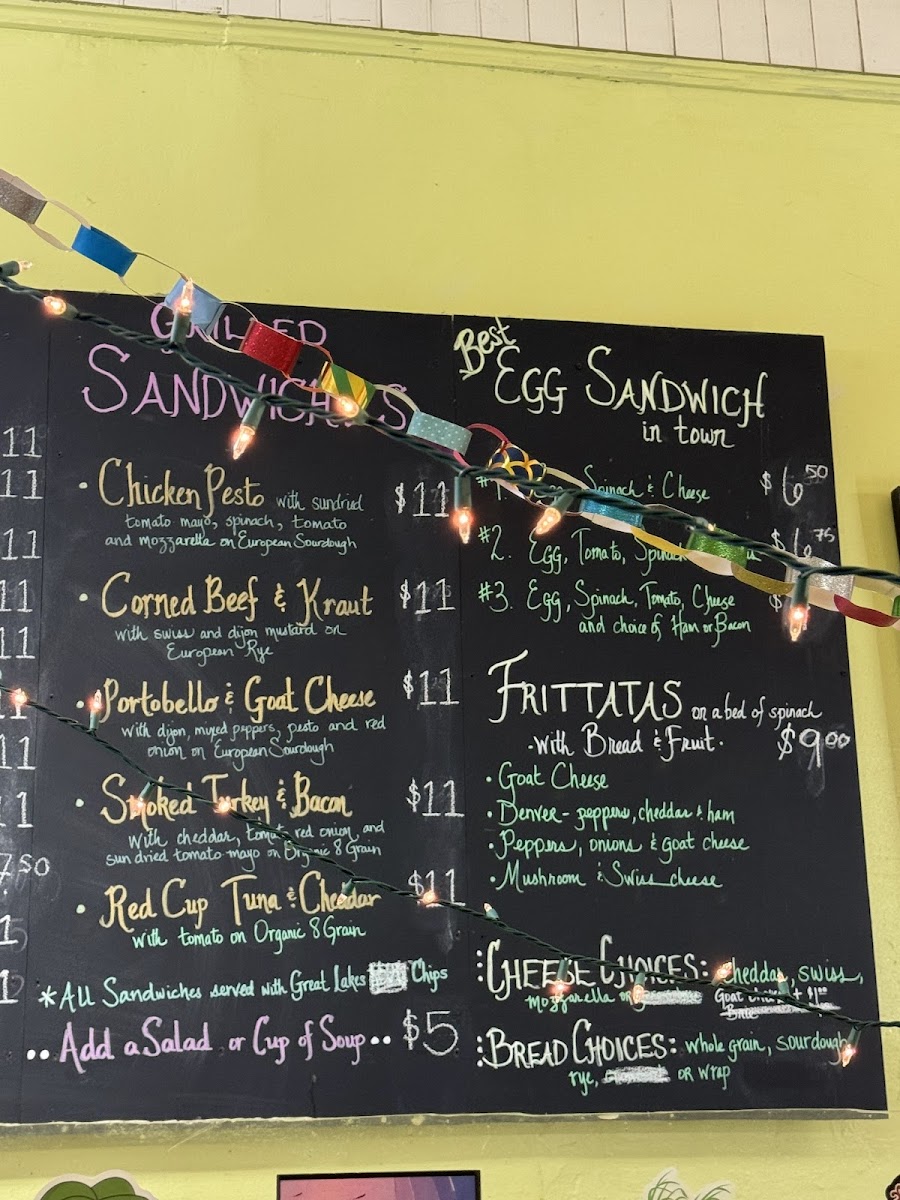 11
11
11
11
11
11
11
7.50
GRILLED
SANDWICHES
• Chicken Pesto with sundried $11
tomato mayo, spinach, tomato
and mozzarella on European Sourdough
• Corned Beef & Kraut $11
with swiss and dijon mustard on
European Rye
• Portobello & Goat Cheese $11
with dijon, mixed peppers, pesto and red
onion on European Sourdough
• Smoked Turkey & Bacon $11
with cheddar, tomato, red onion, and
sundried tomato mayo on Organic 8 Grain
• Red Cup Tuna & Cheddar $11
with tomato on Organic 8 Grain
*All Sandwiches served with Great Lakes Chips
•• Add a Salad or Cup of Soup •• $5
Best
EGG SANDWICH
in town
Spinach & Cheese $6.50
#2. Egg, Tomato, Spinach
#3. Egg, Spinach, Tomato, Cheese
and choice of Ham or Bacon
FRITTATAS on a bed of spinach
• with Bread & Fruit • $9.00
• Goat Cheese
• Denver - peppers, cheddar & ham
• Peppers, onions & goat cheese
• Mushroom & Swiss cheese
CHEESE CHOICES: cheddar, swiss,
mozzarella or
BREAD CHOICES: whole grain, sourdough
rye, or wrap